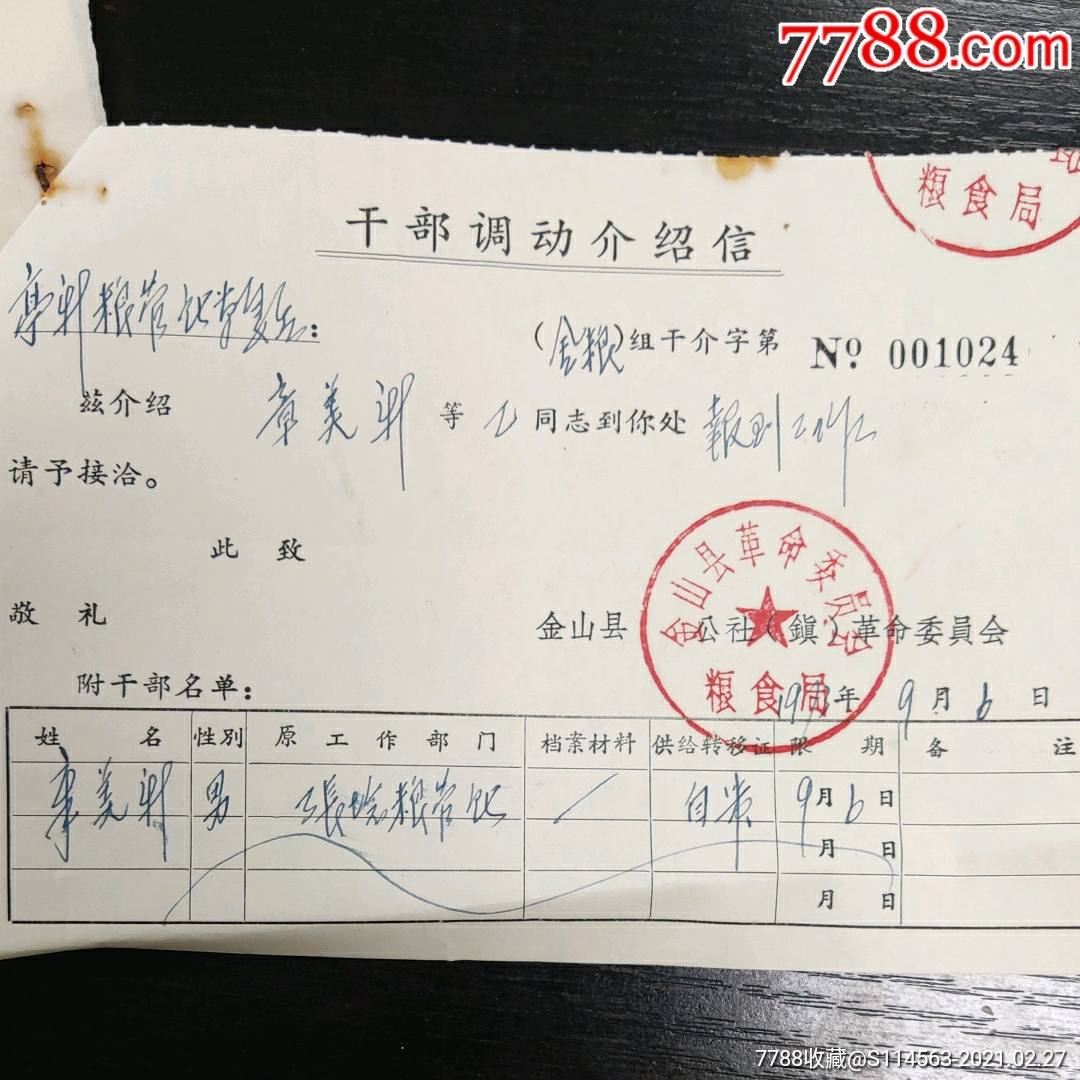 7788.com
粮食局
干部调动介绍信
亭新粮管所党支:
(金粮)组干介字第 № 001024
兹介绍 章美新 等 乙 同志到你处 報到工作
请予接洽。
此致
敬礼
金山县 公社(鎮)革命委員会
金山县革命委员会
粮食局
年 9 月 6 日
附干部名单:
姓名 性别 原工作部门 档案材料 供给转移证 限期 备注
章美新 男 張堰粮管所 / 自带 9月6日
月 日
月 日
7788收藏@S114563-2021.02.27